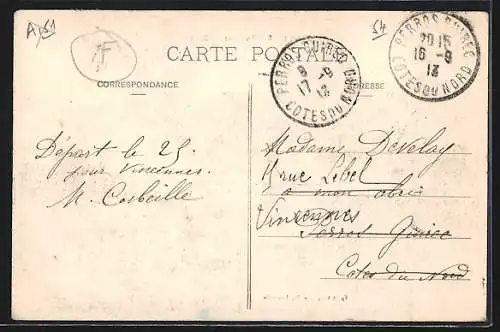 A/51
54
CARTE POSTALE
CORRESPONDANCE
ADRESSE
PERROS-GUIREC
8
17 -9
13
COTES DU NORD
PERROS-GUIREC
2015
16 -9
13
COTES DU NORD
Départ le 25
pour Vincennes.
M. Corbeille
Madame Develay
rue Lebel
a mon abri
Vincennes
Perros Guirec
Cotes du Nord